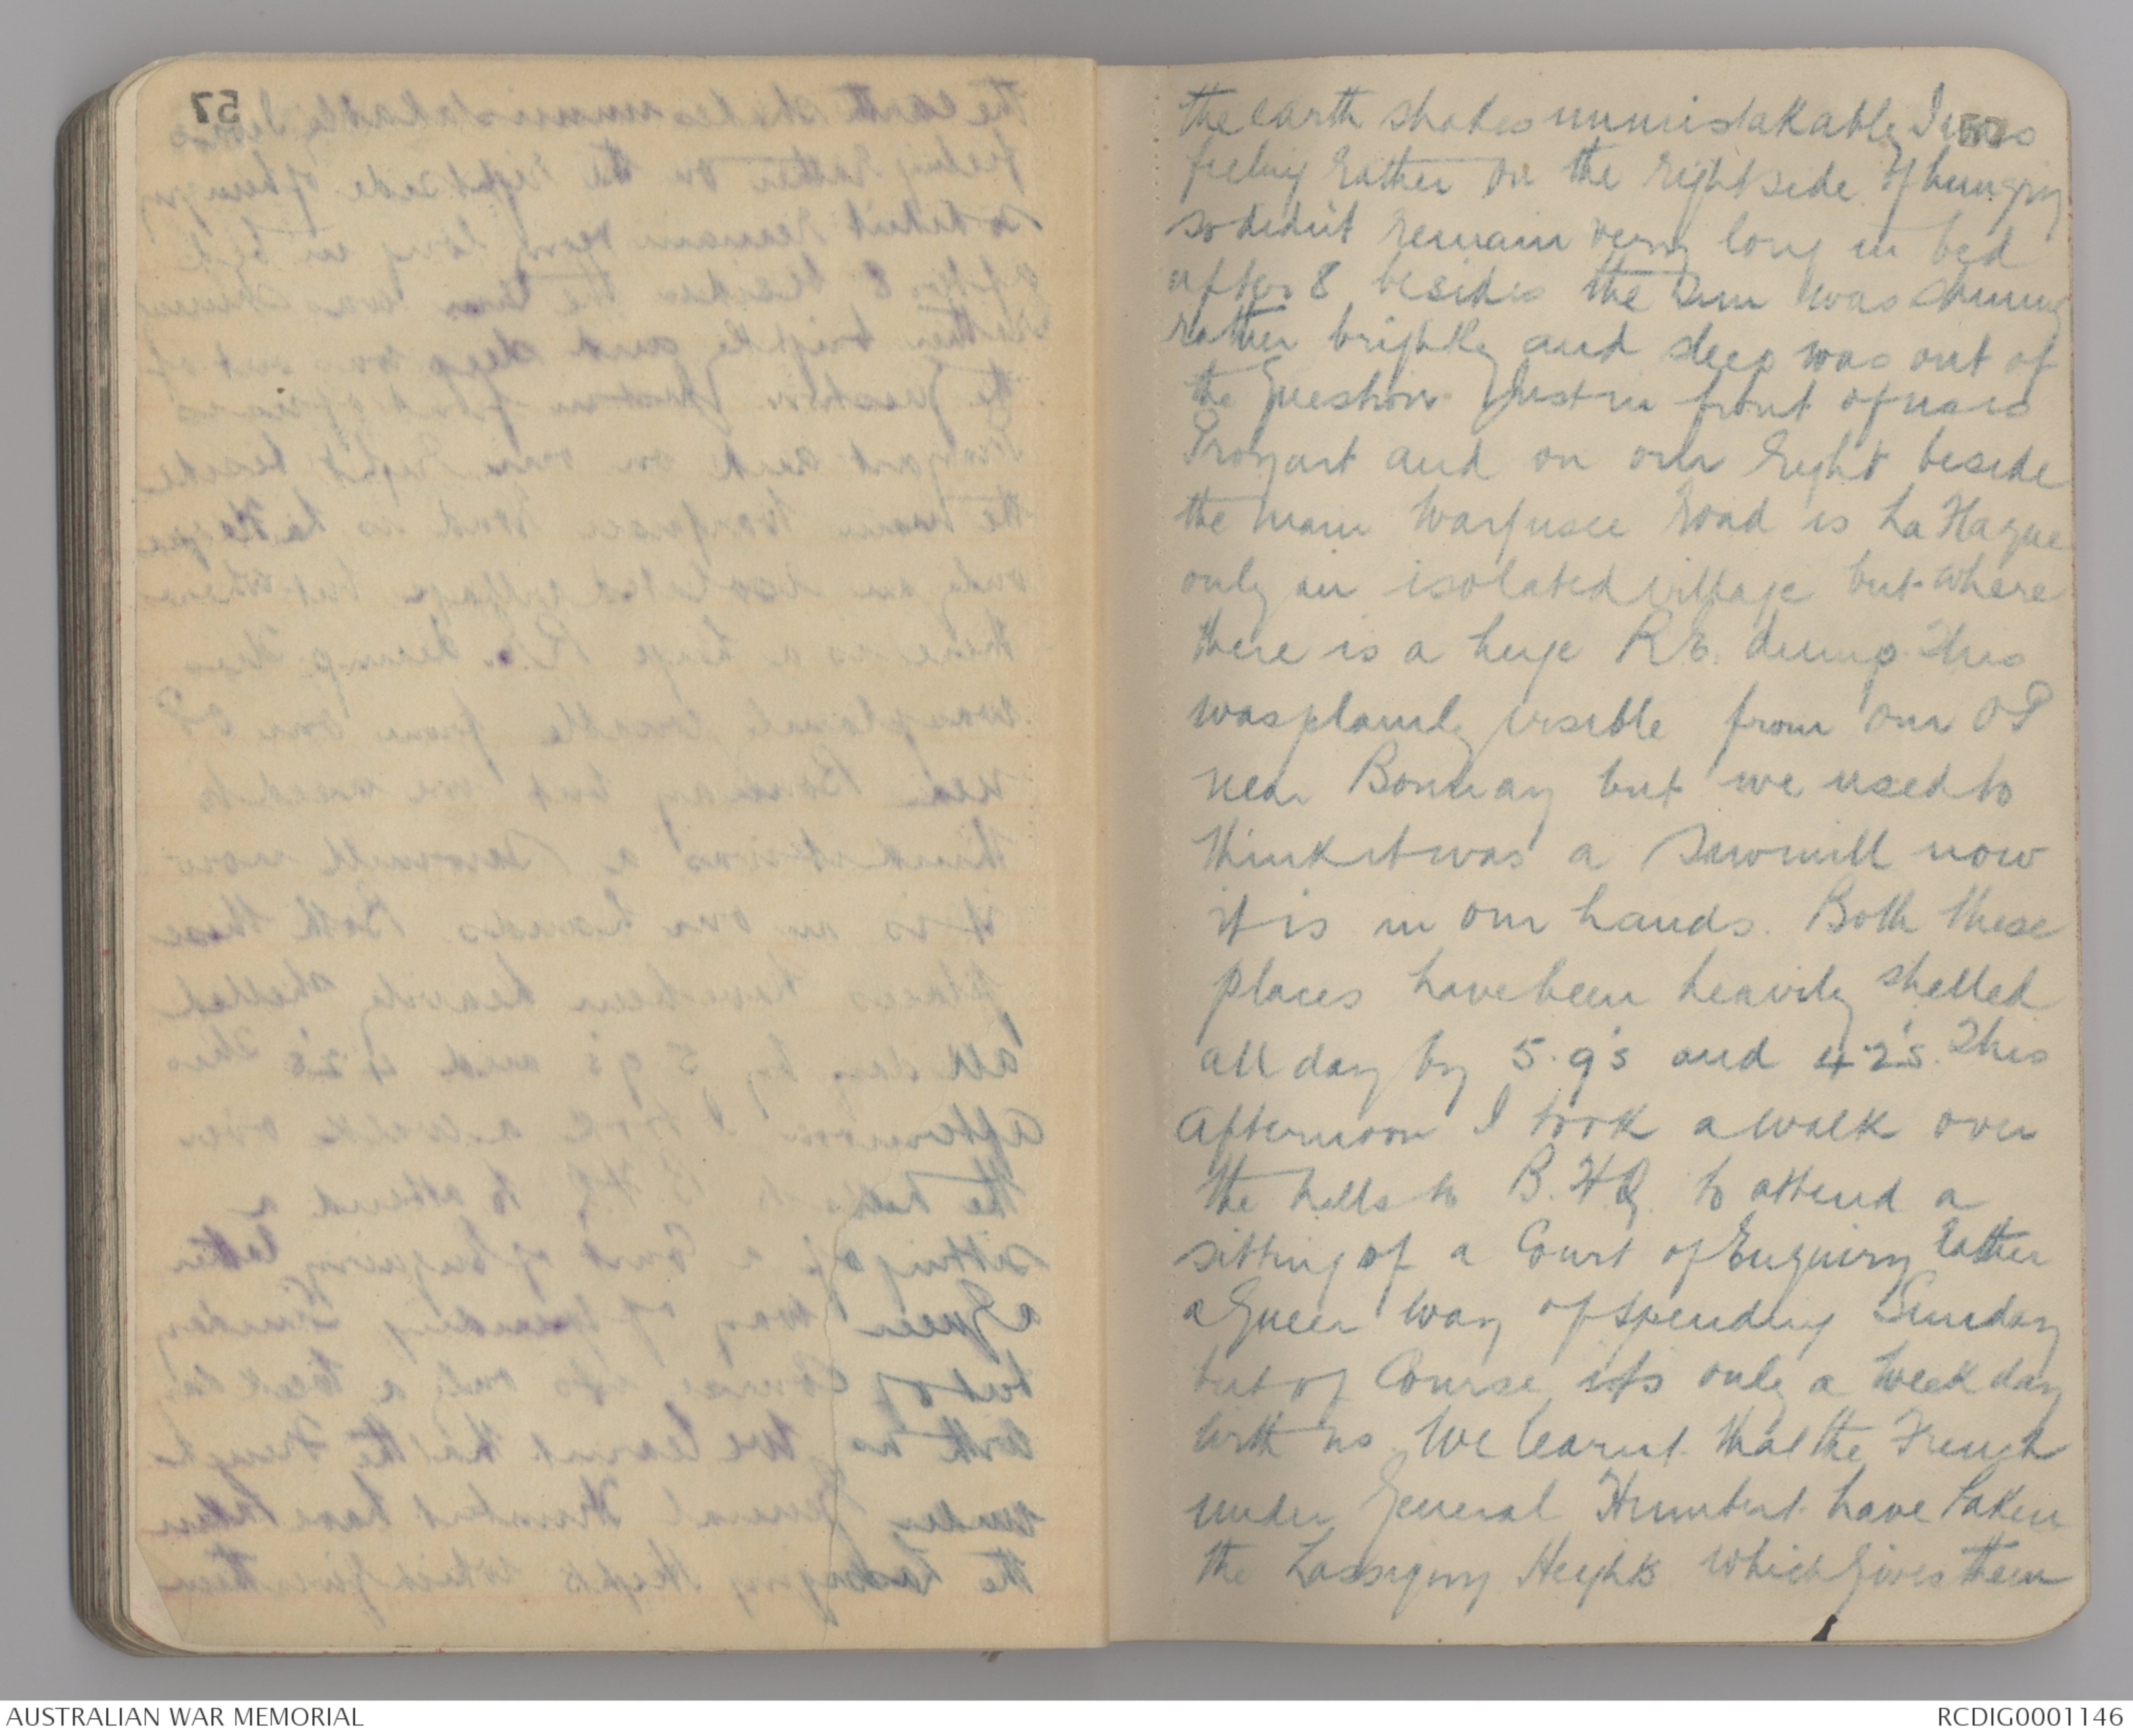 57
the earth shakes unmistakably I was
feeling rather on the right side of hungry
so didn't remain very long in bed
after 8 besides the sun was shining
rather brightly and sleep was out of
the question. Just in front of us is
Proyart and on our right beside
the main Warfusee road is La Flaque
only an isolated village but where
there is a huge R.E. dump. This
was plainly visible from our OP
near Bonnay but we used to
think it was a sawmill now
it is in our hands. Both these
places have been heavily shelled
all day by 5.9's and 4.2's. This
afternoon I took a walk over
the hills to B.HQ. to attend a
sitting of a Court of Enquiry rather
a queer way of spending Sunday
but of course its only a week day
with us. We learnt that the French
under General Humbert have taken
the Lassigny Heights which gives them
AUSTRALIAN WAR MEMORIAL
RCDIG0001146